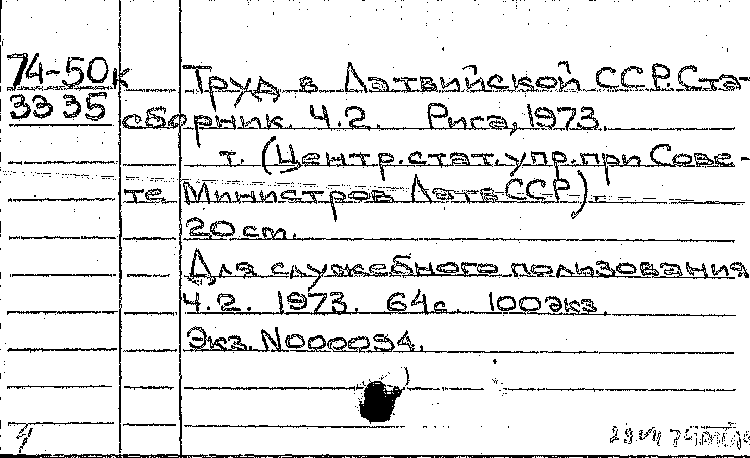 74-50к Труд в Латвийской ССР. Ста-
3335 сборник. Ч.2. Рига, 1973.
т. (Центр. стат. упр. при Сове-
те Министров Латв ССР).
20 cm.
Для служебного пользования
Ч.2. 1973. 64 с. 100 экз.
Экз. N000094.